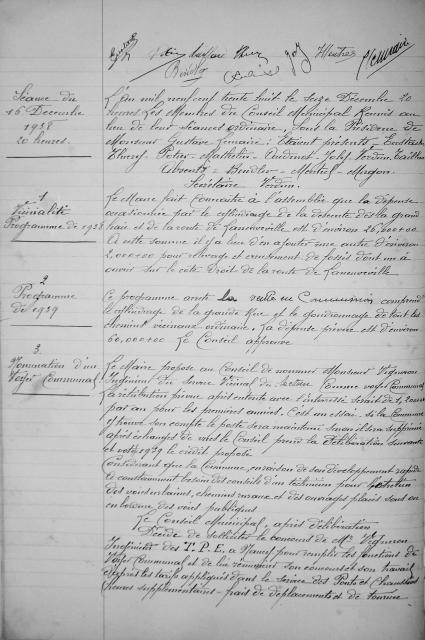 Séance du
16 Décembre
1938
20 heures.
L'An mil neuf cent trente huit le Seize Décembre 20
heures Les Membres du Conseil Municipal Réunis au
lieu de leur Séances ordinaire, sous la Présidence de
Monsieur Gustave Lemaire; Etaient présents
Thiery Potin Mathelin Oudinot Joly Verdun
Absents
Secrétaire Verdun.
1
Vicinalité
Programme de 1938
Le Maire fait Connaître à l'assemblée que la dépense
occasionnée par le cylindrage de la descente dela grand
rue et de la route de Laneuveville est d'environ 26,000+00
A cette somme il y a lieu d'en ajouter une autre d'environ
2,000+00 pour relevage et creusement de fossés
sur le côté droit de la route de Laneuveville
2
Programme
de 1939
Ce programme arrêté la veille en Commission comprend
le cylindrage de la grande Rue et le goudronnage de tout les
chemins vicinaux ordinaire. La dépense prévue est d'environ
60,000+00 Le Conseil approuve
3
Nomination d'un
Voyer Communal
Le Maire propose au Conseil de nommer Monsieur Vigneron
Ingénieur du Service Vicinal du Secteur Comme voyer Communal
la rétribution prévue après entente avec l'intéressé serait de
par an pour les premières années. C'est un essai. si la Commune
y trouve son compte le poste sera maintenu sinon il sera supprimé
après échanges de vues le Conseil prend la délibération suivante
et vote 1939 le crédit proposé
Considérant que la Commune, en raison de son développement rapide
a constamment besoin des conseils d'un technicien pour
des voies urbaines, chemins ruraux, et des ouvrages
des voies publiques
Le Conseil Municipal, après délibération
Décide de solliciter le concours de Mr Vigneron
Ingénieur des T.P.E. à Nancy pour remplir les fonctions de
Voyer Communal et de lui rémunérer son concours et son travail
d'après les tarifs appliqués dans le Service des Ponts et Chaussées
heures supplémentaires - frais de déplacements et de tournée